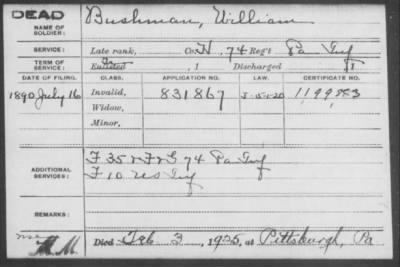 DEAD
NAME OF SOLDIER: Bushman, William
SERVICE: Late rank, Co. H, 74 Reg't Pa Inf
TERM OF SERVICE: Enlisted , 1 Discharged , 1
DATE OF FILING. CLASS. APPLICATION NO. LAW. CERTIFICATE NO.
1890 July 16 Invalid, 831867 1199883
Widow,
Minor,
ADDITIONAL SERVICES: F 35 & F & G 74 Pa Inf
F 10 US Inf
REMARKS:
Died Feb 3, 1925, at Pittsburgh, Pa